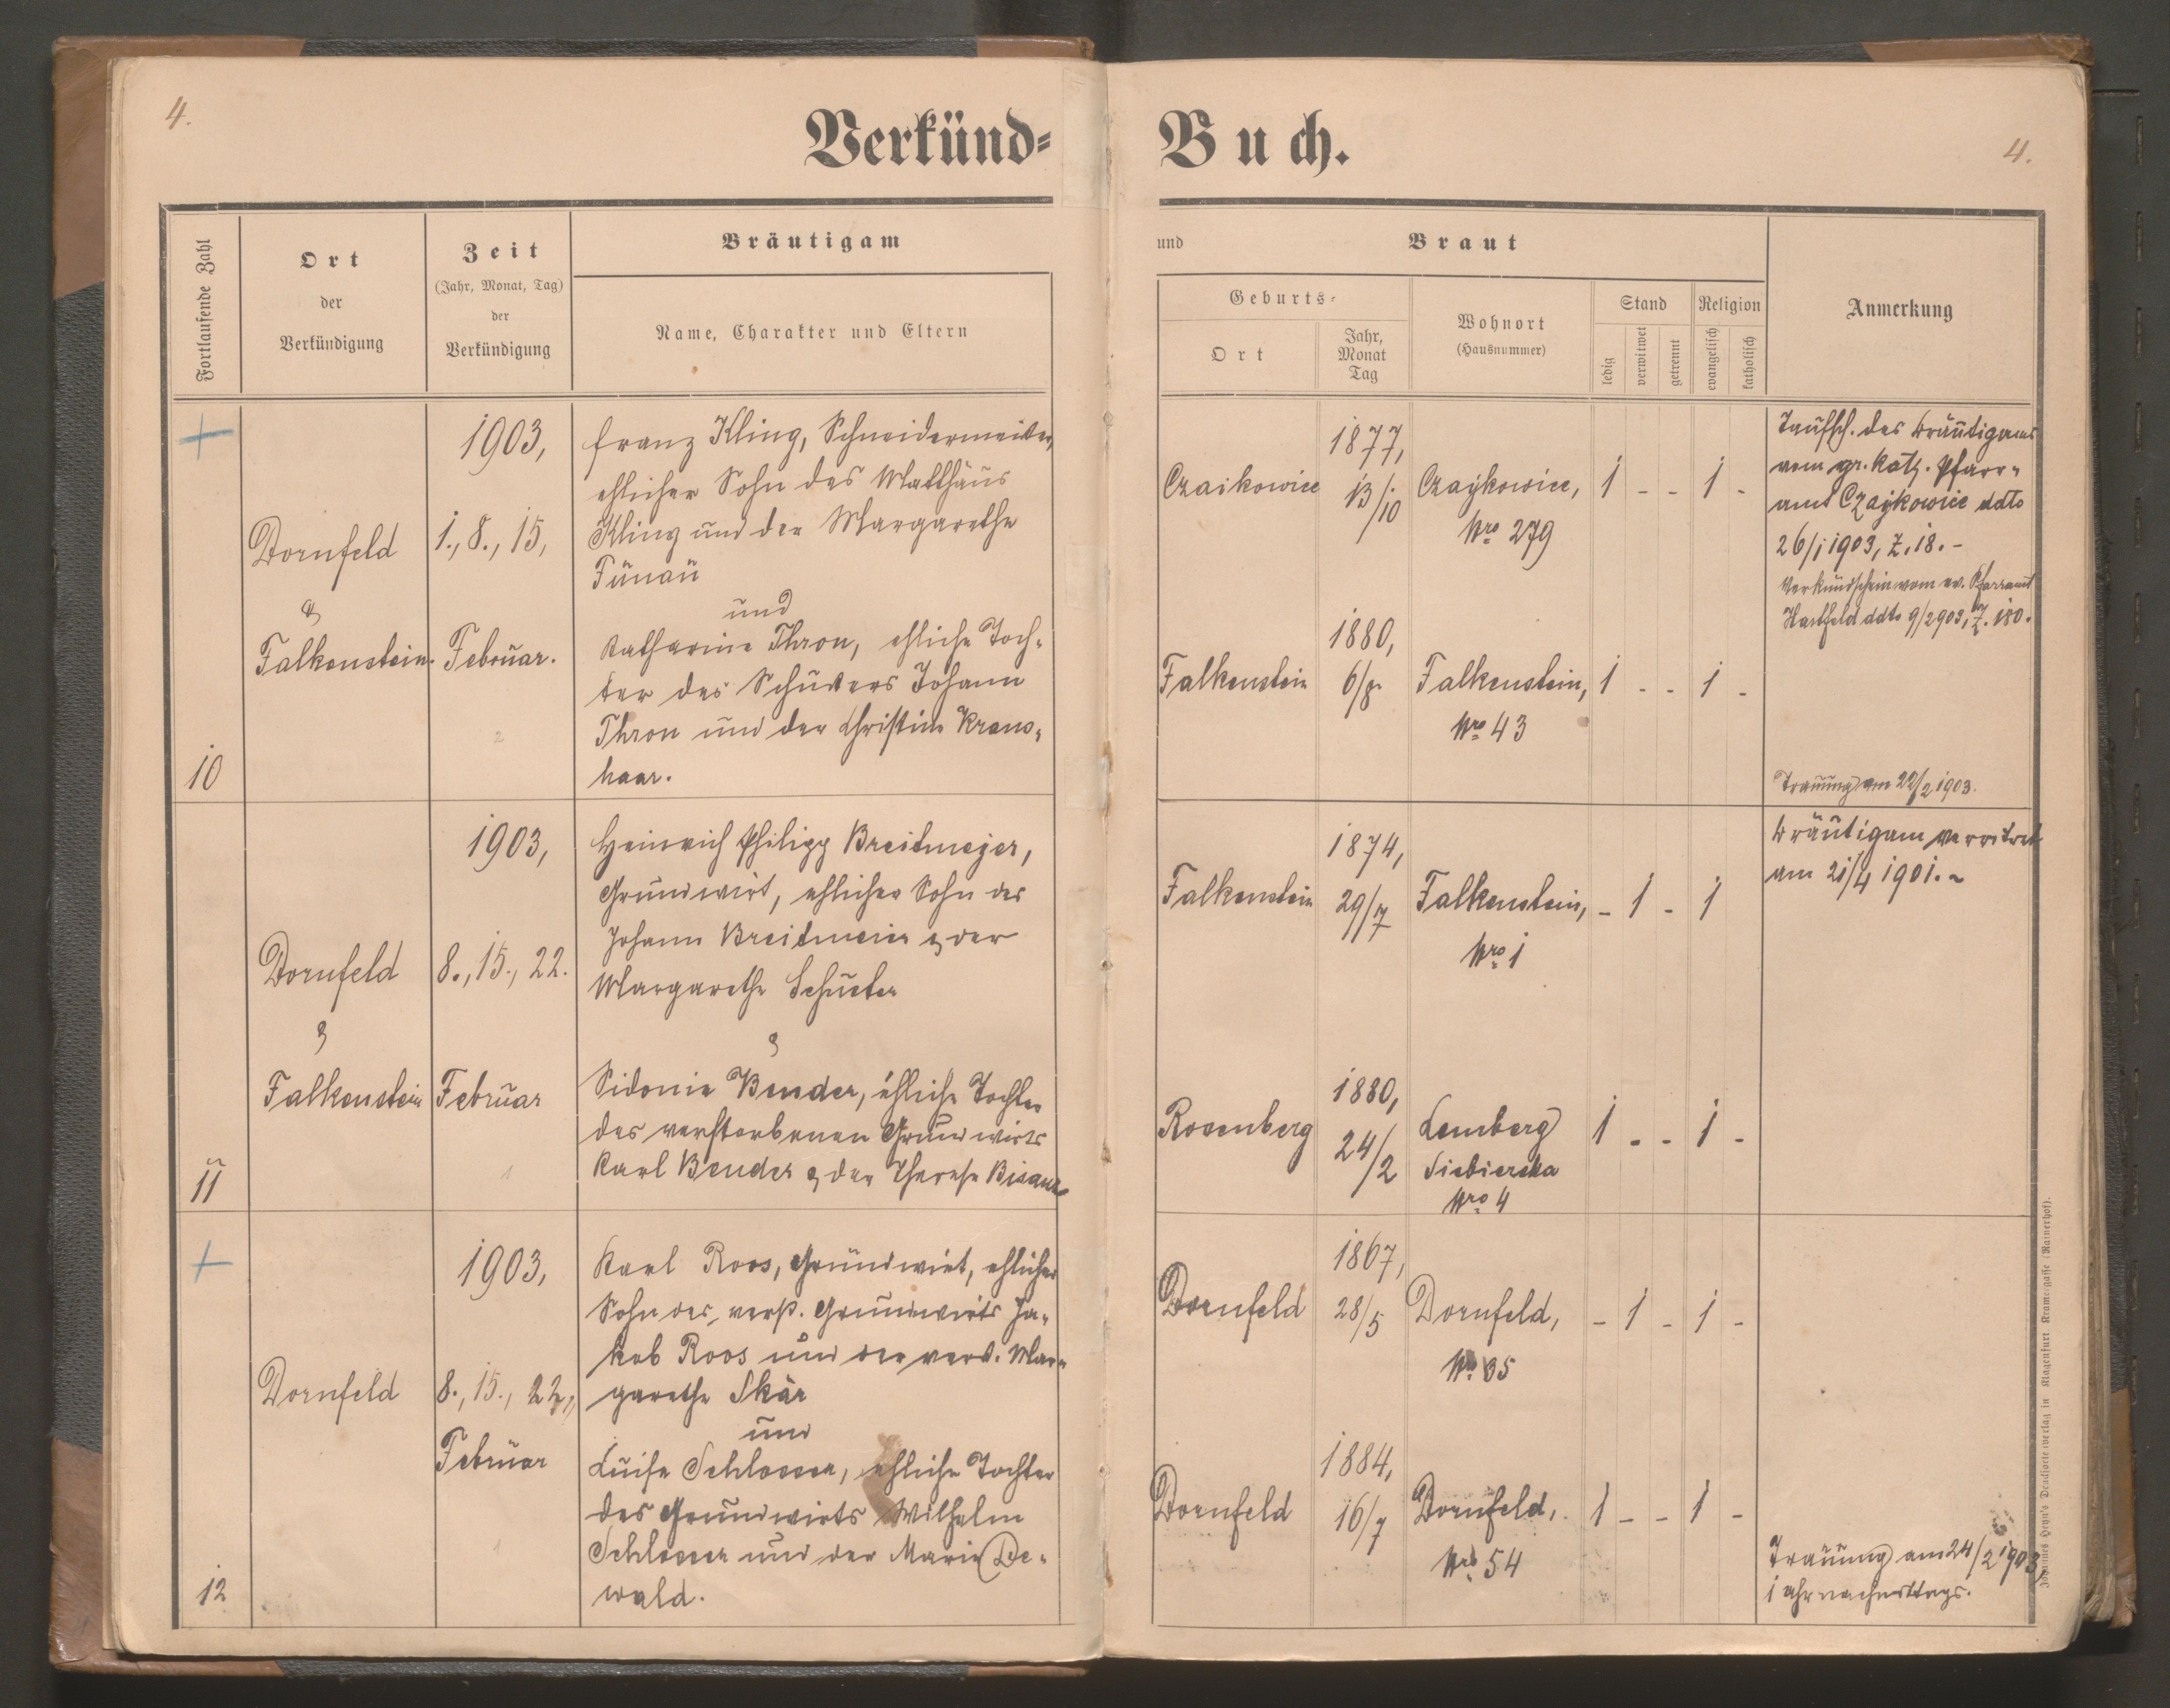 4.
Verkünd=
Buch.
4.
Fortlaufende Zahl
Ort
der
Verkündigung
Zeit
(Jahr, Monat, Tag)
der
Verkündigung
Bräutigam
Name, Charakter und Eltern
und
Braut
Geburts-
Ort
Jahr,
Monat
Tag
Wohnort
(Hausnummer)
Stand
ledig
verwitwet
getrennt
Religion
evangelisch
katholisch
Anmerkung
10
Dornfeld
&
Falkenstein.
1903,
1., 8., 15,
Februar.
2
Franz Kling, Schneidermeister,
ehlicher Sohn des Matthäus
Kling und der Margarethe
Tünaü
und
Katharine Thron, ehliche Toch-
ter des Schusters Johann
Thron und der Christine Kraus-
haar.
Czaikowice
1877,
13/10
Czajkowice,
Nro 279
1 - - 1 -
Falkenstein
1880,
6/8
Falkenstein,
Nro 43
1 - - 1 -
Taufsch. des Bräutigams
vom gr. kath. Pfarr-
amt Czajkowice ddto
26/1 1903, Z. 18. -
Verkündschein vom ev. Pfarramt
Hartfeld ddto 9/2 903, Z. 180.
Trauung am 22/2 1903.
11
Dornfeld
&
Falkenstein
1903,
8., 15., 22.
Februar
1
Heinrich Philipp Breitmejer,
Grundwirt, ehlicher Sohn des
Johann Breitmeier & der
Margarethe Schuster
&
Sidonie Bender, ehliche Tochter
des verstorbenen Grundwirts
Karl Bender & der Therese Bisanz
Falkenstein
1874,
29/7
Falkenstein,
Nro 1
- 1 - 1
Rosenberg
1880,
24/2
Lemberg
Nro 4
1 - - 1 -
Bräutigam verwitwet
am 21/4 1901. -
12
Dornfeld
1903,
8., 15., 22.,
Februar
1
Karl Roos, Grundwirt, ehlicher
Sohn des verst. Grundwirts Ja-
kob Roos und der verst. Mar-
garethe Skär
und
Luise Schlosser, ehliche Tochter
des Grundwirts Wilhelm
Schlosser und der Marie De-
wald.
Dornfeld
1867,
28/5
Dornfeld,
No 35
- 1 - 1 -
Dornfeld
1884,
16/7
Dornfeld,
Nro 54
1 - - 1 -
Trauung am 24/2 1903,
1 Uhr nachmittags.